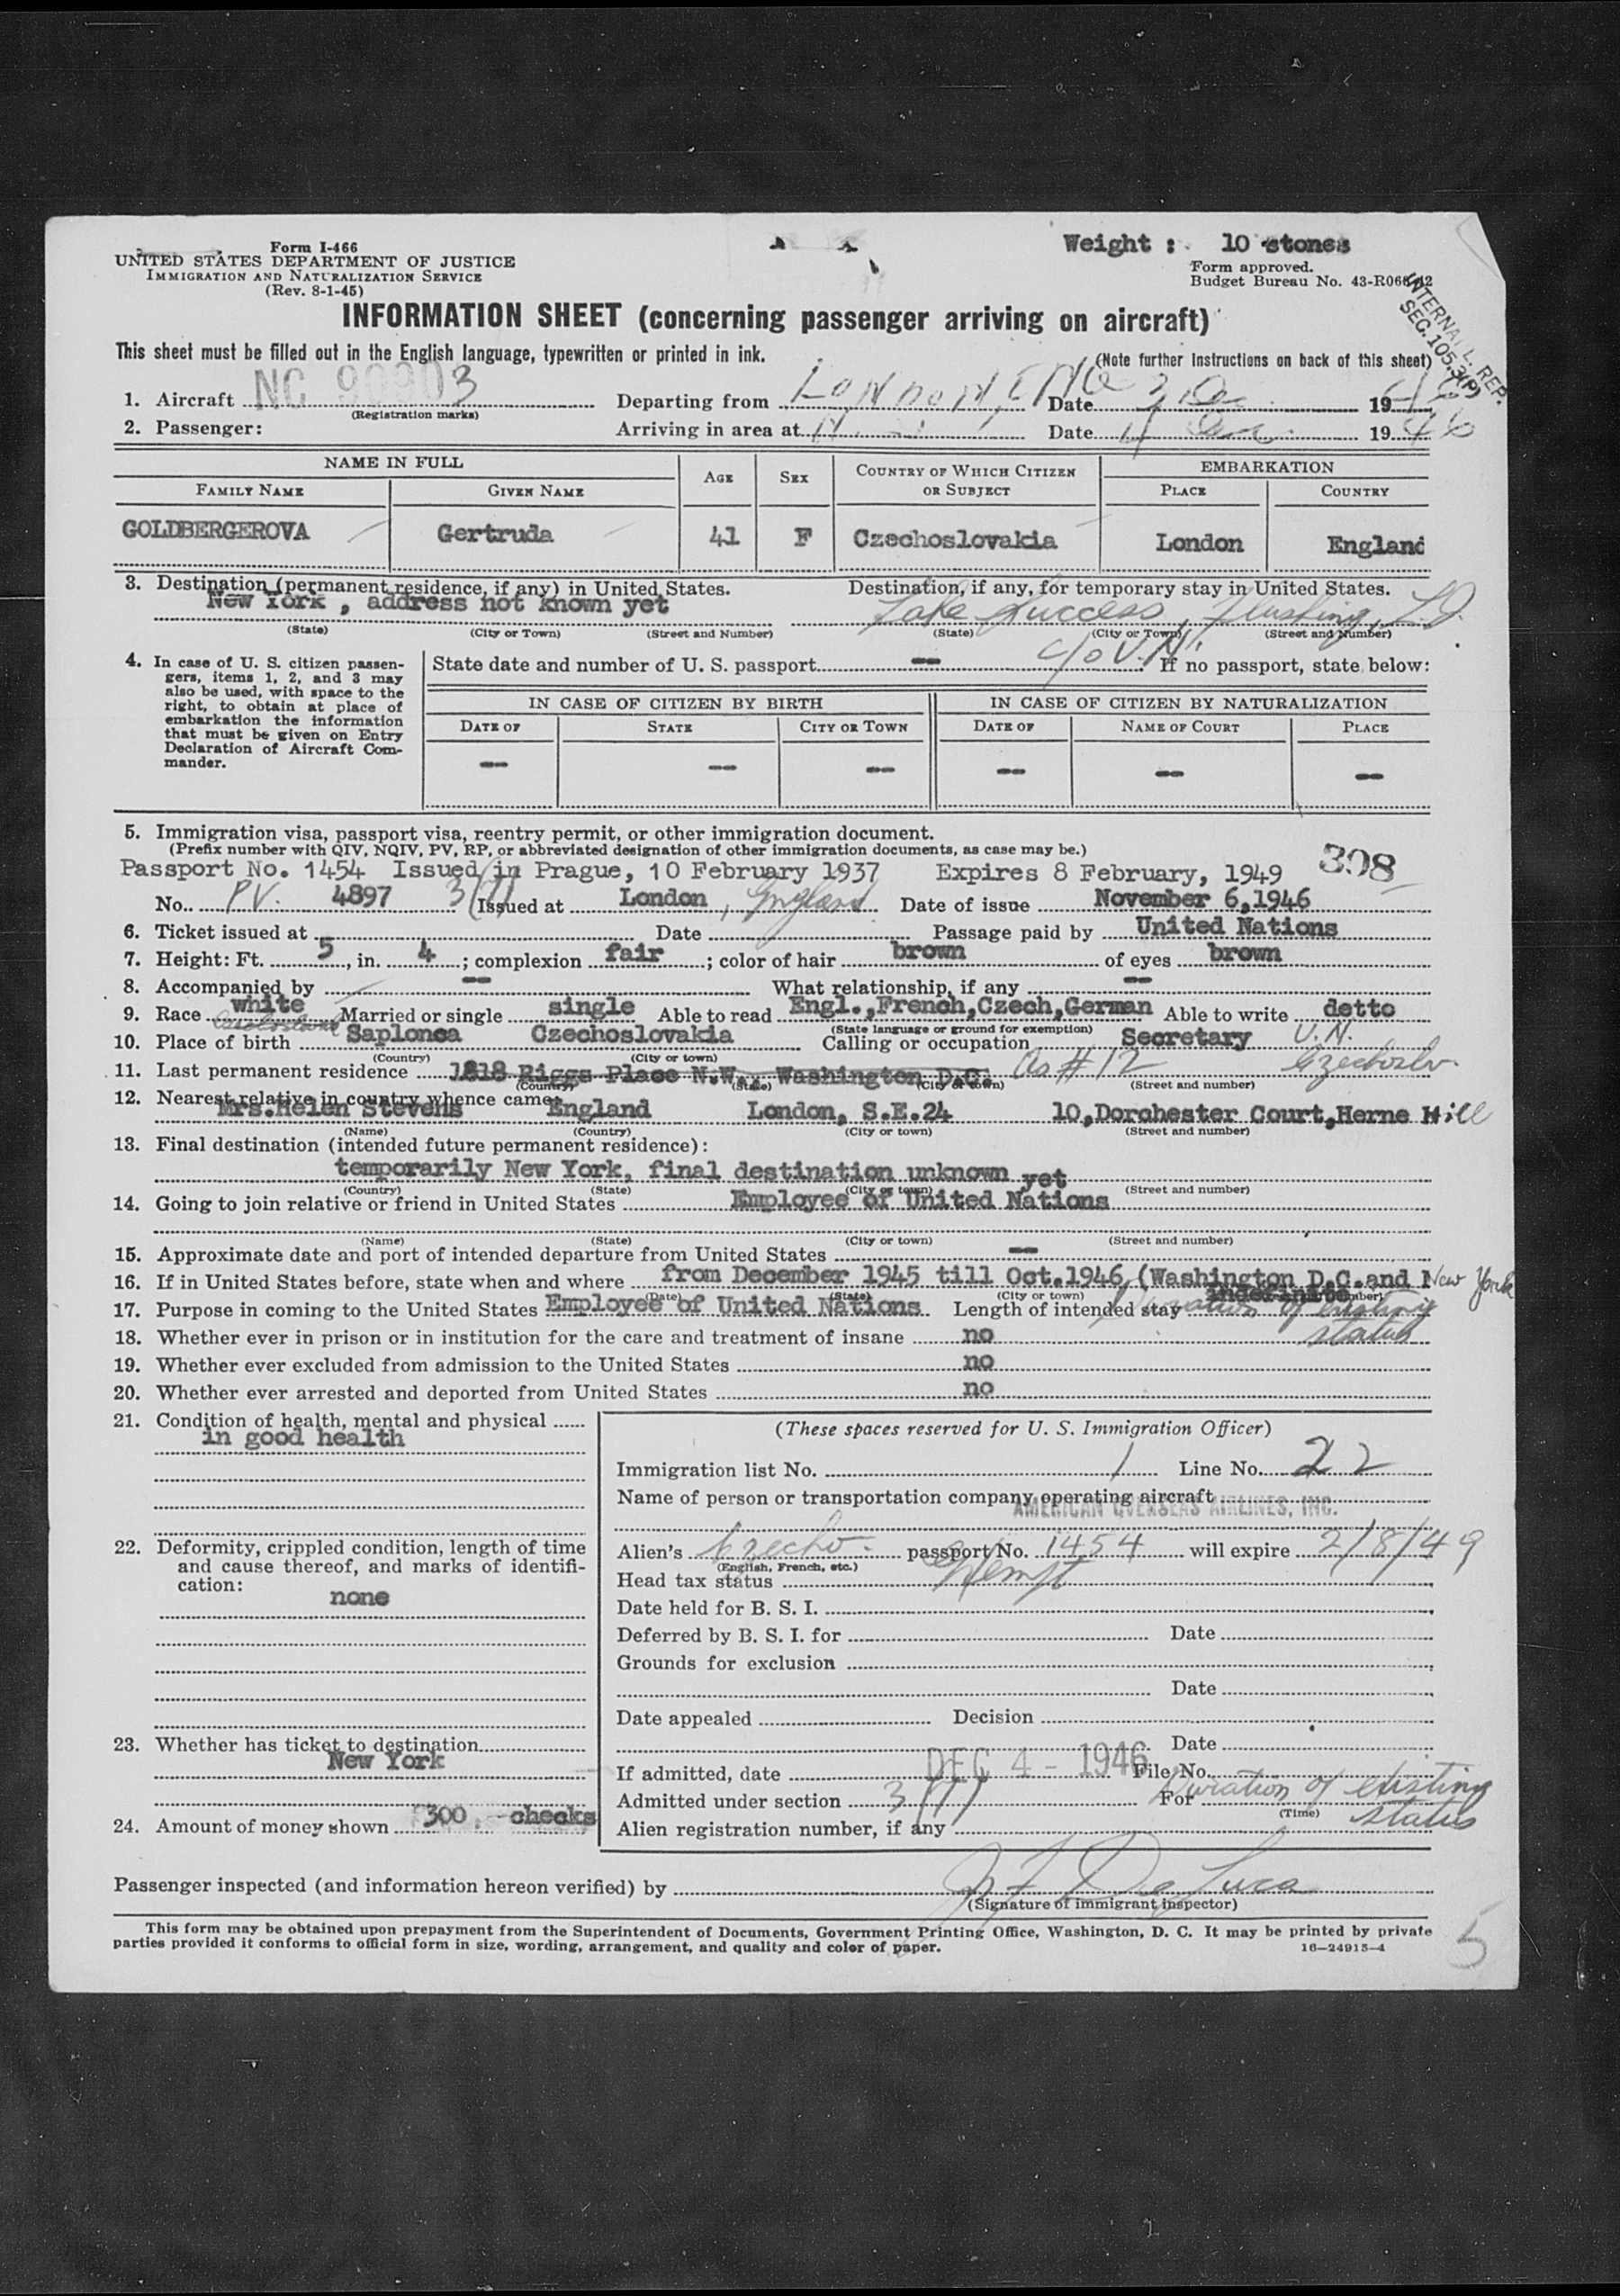 Form I-466
UNITED STATES DEPARTMENT OF JUSTICE
IMMIGRATION AND NATURALIZATION SERVICE
(Rev. 8-1-45)
Weight : 10 stones
Form approved.
Budget Bureau No. 43-R068
INTERNA'L. REP.
SEC. 105.3(P)
INFORMATION SHEET (concerning passenger arriving on aircraft)
This sheet must be filled out in the English language, typewritten or printed in ink.
(Note further instructions on back of this sheet)
1. Aircraft NC 90903 Departing from LONDON, ENG Date 3 Dec 1946
(Registration marks)
2. Passenger: Arriving in area at Date 4 Dec 1946
NAME IN FULL
FAMILY NAME GIVEN NAME AGE SEX COUNTRY OF WHICH CITIZEN OR SUBJECT EMBARKATION PLACE COUNTRY
GOLDBERGEROVA Gertruda 41 F Czechoslovakia London England
3. Destination (permanent residence, if any) in United States. Destination, if any, for temporary stay in United States.
New York , address not known yet Lake Success, Flushing, L.I.
(State) (City or Town) (Street and Number) (State) (City or Town) (Street and Number)
c/o U.N.
4. In case of U. S. citizen passengers, items 1, 2, and 3 may also be used, with space to the right, to obtain at place of embarkation the information that must be given on Entry Declaration of Aircraft Commander.
State date and number of U. S. passport -- If no passport, state below:
IN CASE OF CITIZEN BY BIRTH IN CASE OF CITIZEN BY NATURALIZATION
DATE OF STATE CITY OR TOWN DATE OF NAME OF COURT PLACE
-- -- -- -- -- --
5. Immigration visa, passport visa, reentry permit, or other immigration document.
(Prefix number with QIV, NQIV, PV, RP, or abbreviated designation of other immigration documents, as case may be.)
Passport No. 1454 Issued in Prague, 10 February 1937 Expires 8 February, 1949 398
No. P.V. 4897 3(7) Issued at London, England Date of issue November 6,1946
6. Ticket issued at Date Passage paid by United Nations
7. Height: Ft. 5, in. 4; complexion fair; color of hair brown of eyes brown
8. Accompanied by -- What relationship, if any --
9. Race white Married or single single Able to read Engl.,French,Czech,German Able to write detto
(State language or ground for exemption)
10. Place of birth Saplonca Czechoslovakia Calling or occupation Secretary U.N.
(Country) (City or town)
11. Last permanent residence 1818 Riggs Place N.W., Washington D.C. As #12 Czechoslv.
(Country) (State) (City or town) (Street and number)
12. Nearest relative in country whence came:
Mrs.Helen Stevens England London, S.E.24 10,Dorchester Court,Herne Hill
(Name) (Country) (City or town) (Street and number)
13. Final destination (intended future permanent residence):
temporarily New York, final destination unknown yet
(Country) (State) (City or town) (Street and number)
14. Going to join relative or friend in United States Employee of United Nations
(Name) (State) (City or town) (Street and number)
15. Approximate date and port of intended departure from United States --
16. If in United States before, state when and where from December 1945 till Oct.1946 (Washington D.C.and New York
(Date) (State) (City or town)
17. Purpose in coming to the United States Employee of United Nations Length of intended stay indefinite Duration of existing status
18. Whether ever in prison or in institution for the care and treatment of insane no
19. Whether ever excluded from admission to the United States no
20. Whether ever arrested and deported from United States no
21. Condition of health, mental and physical
in good health
22. Deformity, crippled condition, length of time and cause thereof, and marks of identification:
none
23. Whether has ticket to destination
New York
24. Amount of money shown 300 checks
(These spaces reserved for U. S. Immigration Officer)
Immigration list No. 1 Line No. 22
Name of person or transportation company operating aircraft
AMERICAN OVERSEAS AIRLINES, INC.
Alien's Czecho. passport No. 1454 will expire 2/8/49
(English, French, etc.)
Head tax status Exempt
Date held for B. S. I.
Deferred by B. S. I. for Date
Grounds for exclusion
Date
Date appealed Decision
Date
If admitted, date DEC 4 - 1946 File No.
Admitted under section 3(7) For Duration of existing status
(Time)
Alien registration number, if any
Passenger inspected (and information hereon verified) by J F DeLuca
(Signature of immigrant inspector)
This form may be obtained upon prepayment from the Superintendent of Documents, Government Printing Office, Washington, D. C. It may be printed by private
parties provided it conforms to official form in size, wording, arrangement, and quality and color of paper.
16—24915-4
5